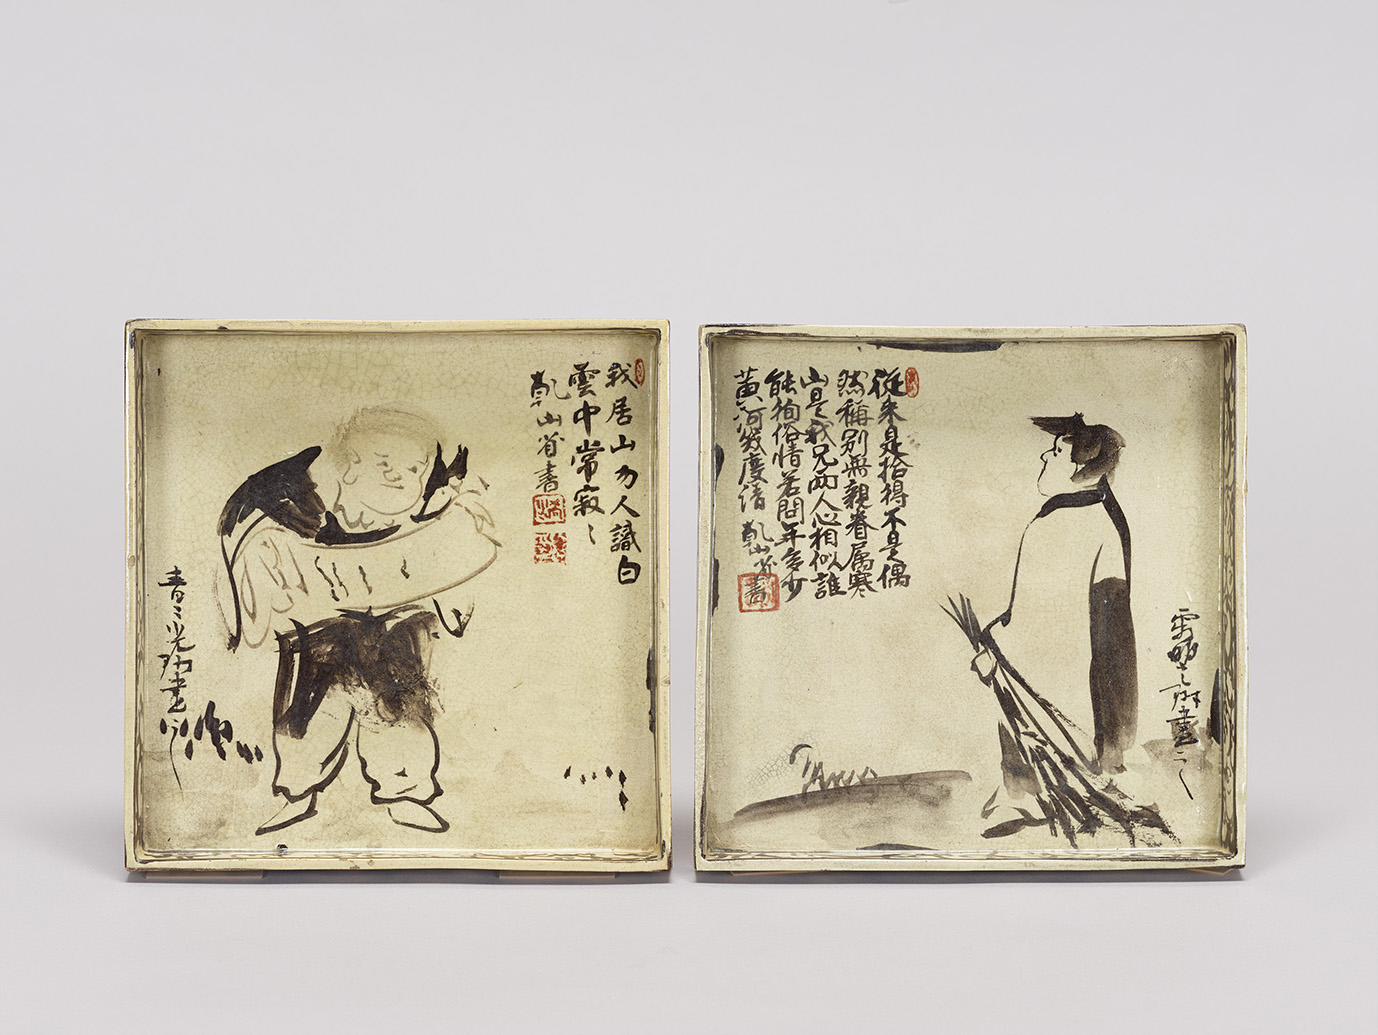 我居山勿人識白
雲中常寂〻
乾山省書
青〻光琳畫之
從来是拾得不是偶
然稱別無親眷属寒
山是我兄兩人心相似誰
能徇俗情若問年多少
黄河幾度清 乾山省書